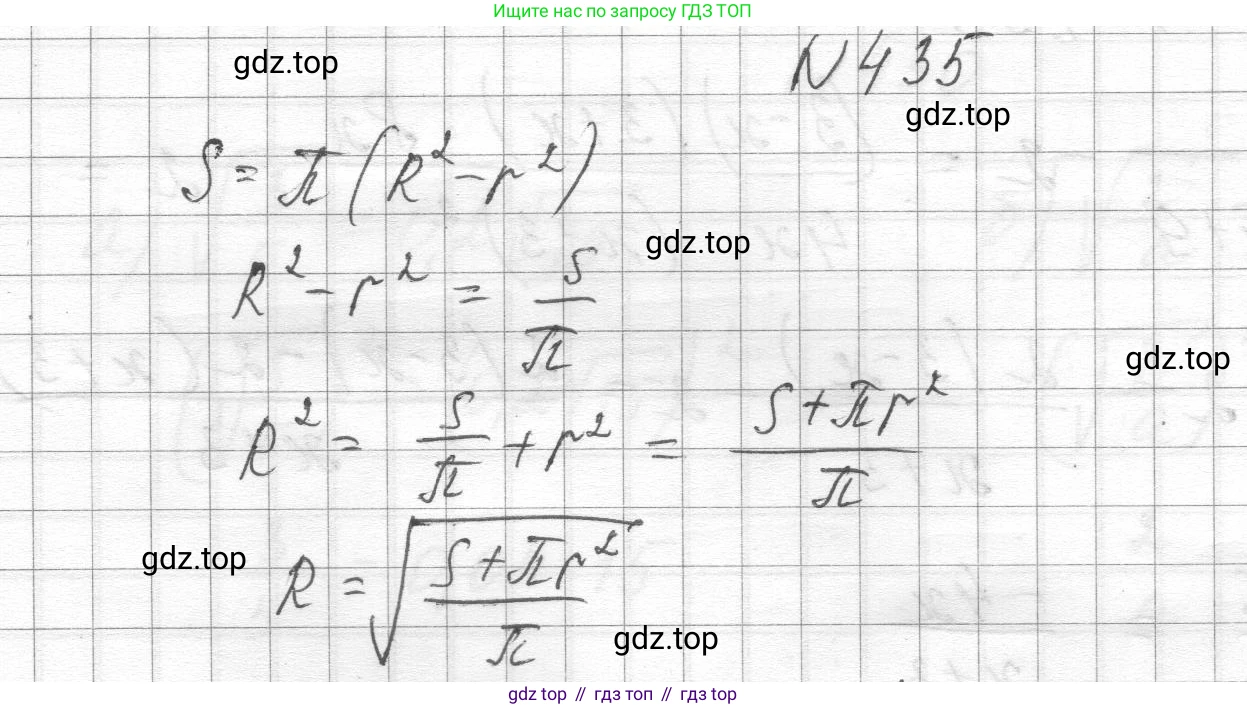 Ищите нас по запросу ГДЗ ТОП
gdz.top
N 435
gdz.top
S = π (R² - r²)
gdz.top
R² - r² = S/π
gdz.top
R² = S/π + r² = (S + πr²)/π
gdz.top
R = √((S + πr²)/π)
gdz.top
gdz top // гдз топ // гдз top